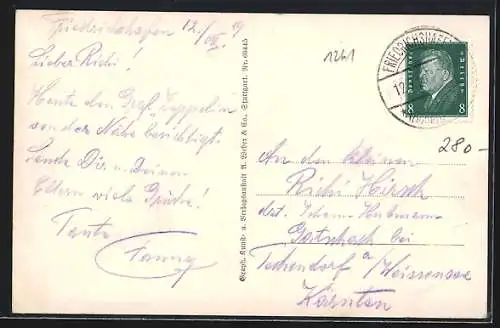 Friedrichshafen 12./VIII. 29
Lieber Richi!
Heute den Graf Zeppelin
von der Nähe besichtigt.
Sende Dir u. Deinen
Eltern viele Grüße!
Tante
Fanny
Graph. Kunst- u. Verlagsanstalt A. Weber & Co., Stuttgart. Nr. 69445
1241
FRIEDRICHSHAFEN
DEUTSCHES REICH
8 8
280-
An den kleinen
Richi Hirsch
Gatschach bei
Techendorf a/Weissensee
Kärnten